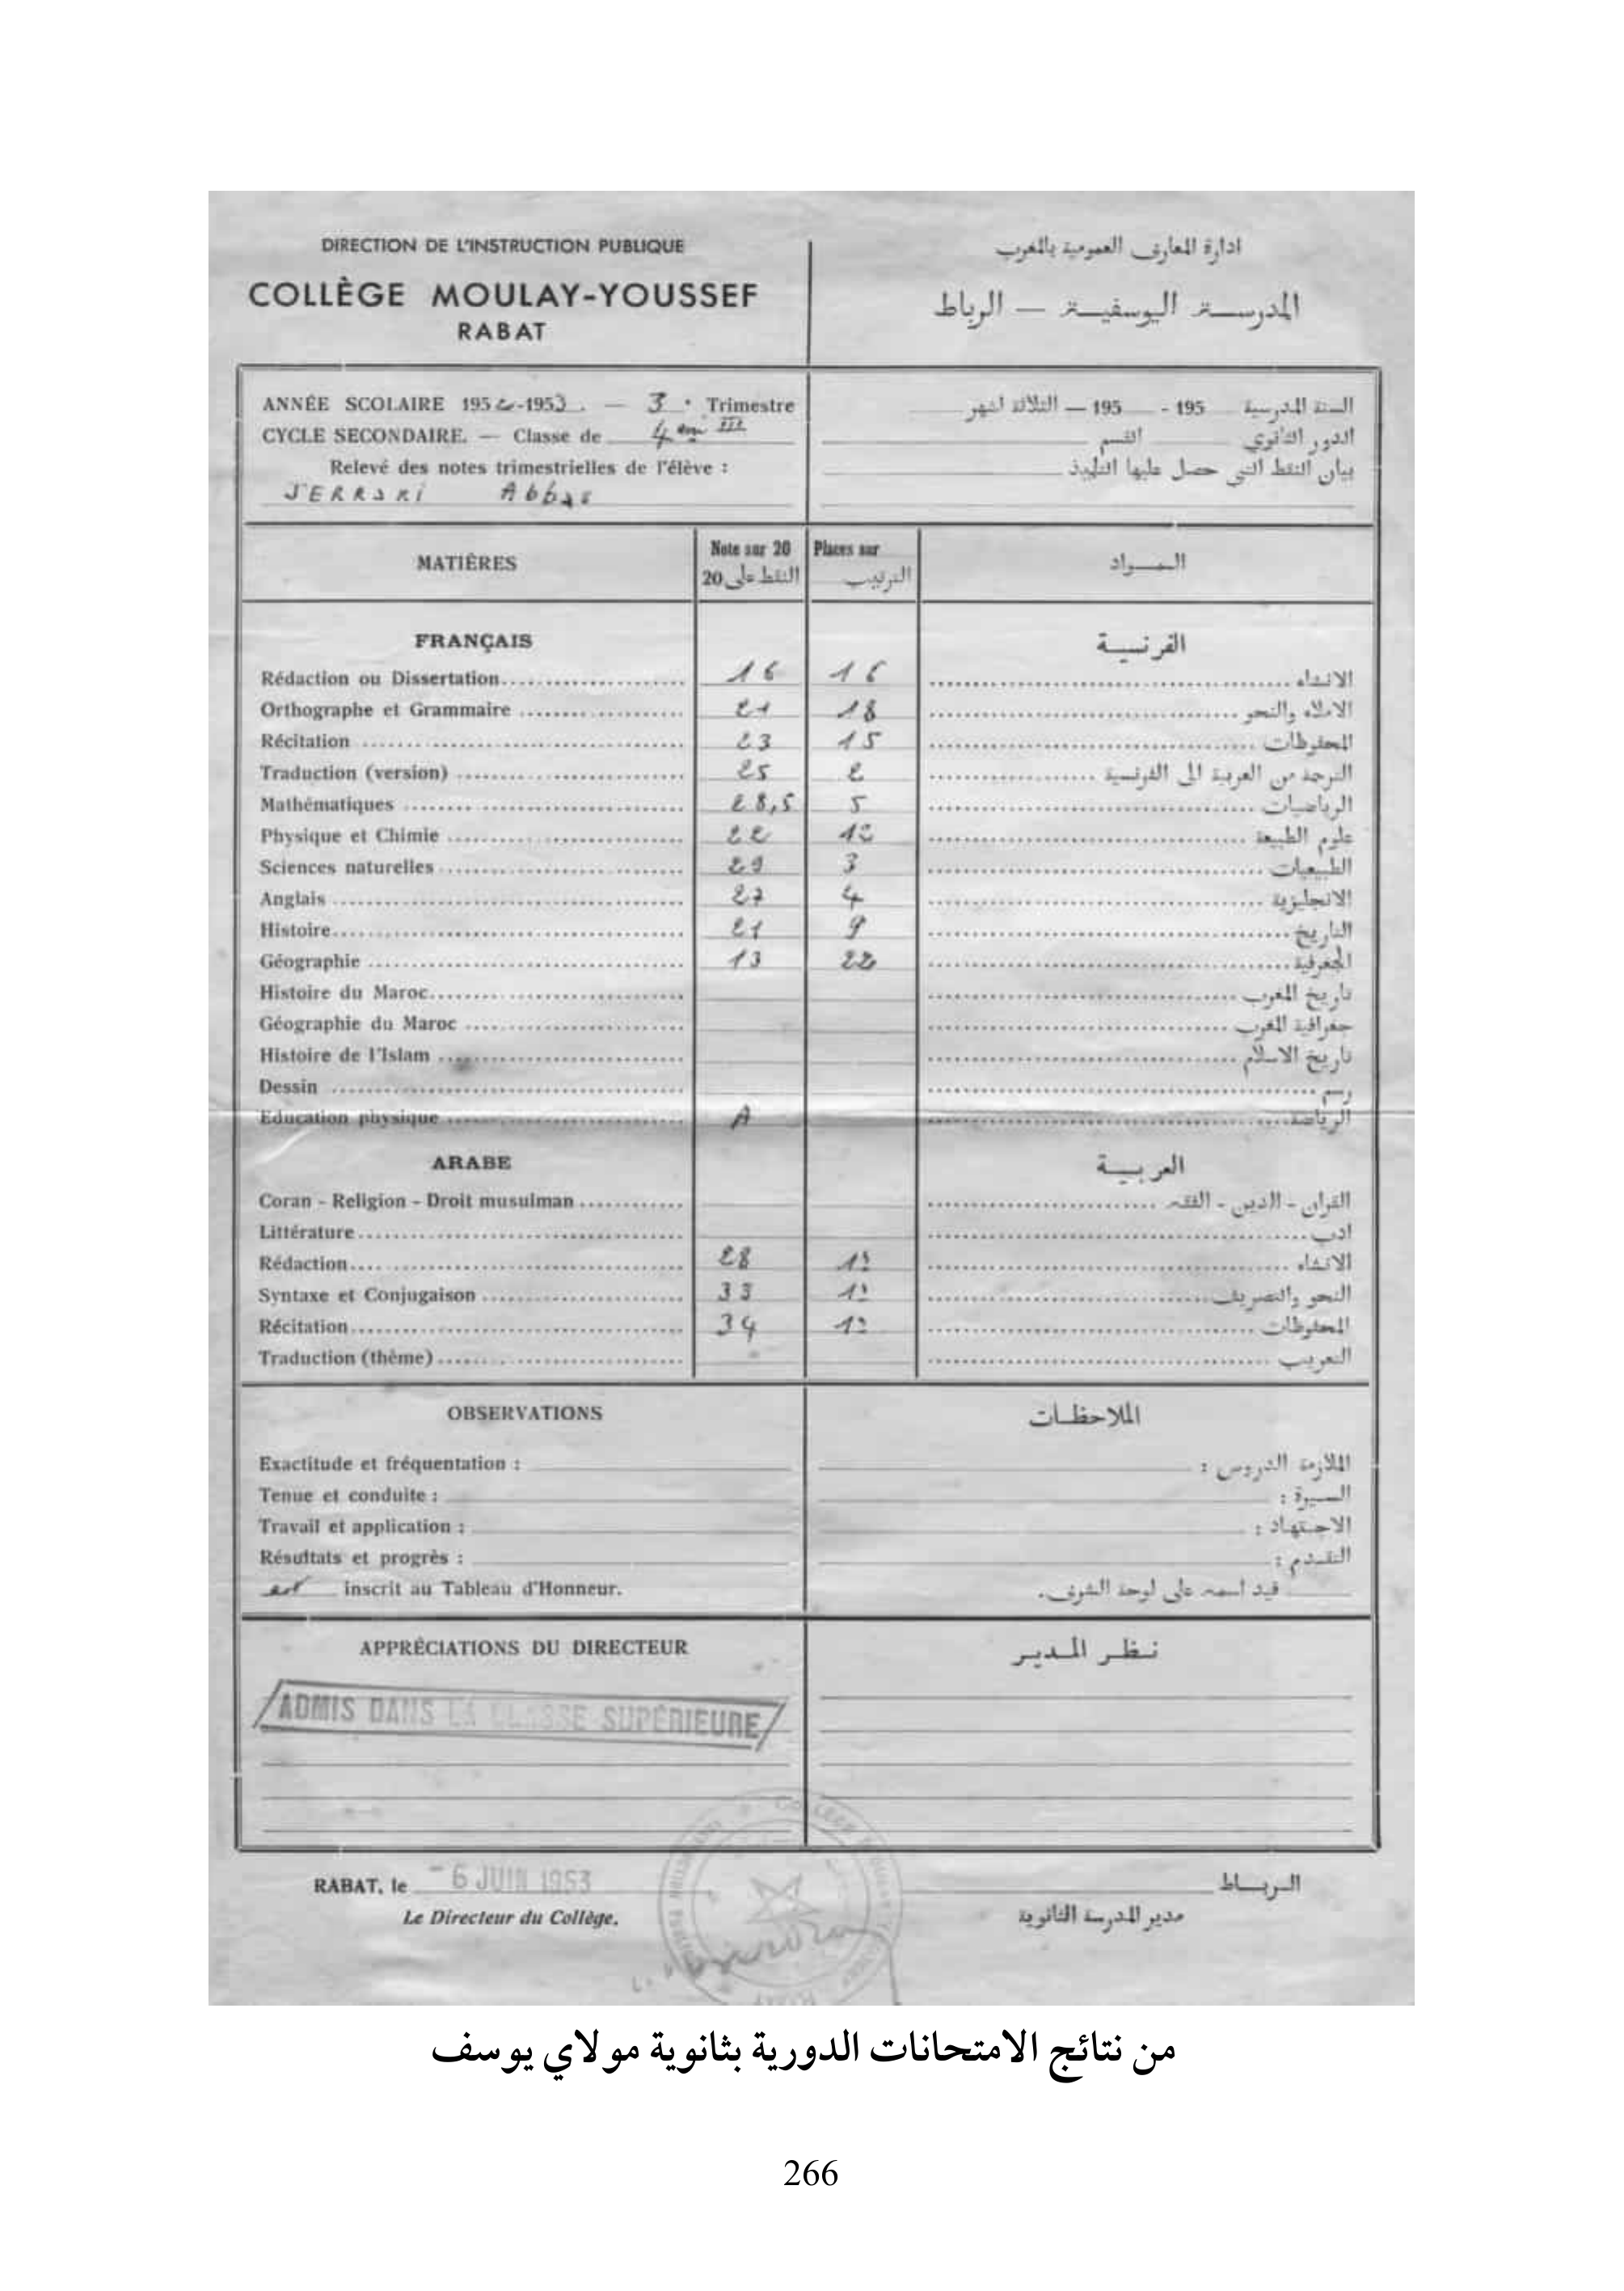 DIRECTION DE L'INSTRUCTION PUBLIQUE
COLLÈGE MOULAY-YOUSSEF
RABAT
ادارة المعارف العمومية بالمغرب
المدرسة اليوسفية — الرباط
ANNÉE SCOLAIRE 1952-1953. — 3e Trimestre
CYCLE SECONDAIRE. — Classe de 4em III
Relevé des notes trimestrielles de l'élève :
JERRARI Abbas
السنة المدرسية 195 - 195 — الثلاثة اشهر
الدور الثانوي القسم
بيان النقط التي حصل عليها التلميذ
MATIÈRES Note sur 20 Places sur
النقط على 20 الترتيب المواد
FRANÇAIS الفرنسية
Rédaction ou Dissertation 16 16 الانشاء
Orthographe et Grammaire 21 18 الاملاء والنحو
Récitation 23 15 المحفوظات
Traduction (version) 25 2 الترجمة من العربية الى الفرنسية
Mathématiques 28,5 5 الرياضيات
Physique et Chimie 22 12 علوم الطبيعة
Sciences naturelles 29 3 الطبيعيات
Anglais 27 4 الانجليزية
Histoire 21 9 التاريخ
Géographie 13 22 الجغرفية
Histoire du Maroc تاريخ المغرب
Géographie du Maroc جغرافية المغرب
Histoire de l'Islam تاريخ الاسلام
Dessin رسم
Education physique A الرياضة
ARABE العربية
Coran - Religion - Droit musulman القران - الدين - الفقه
Littérature ادب
Rédaction 28 1º الانشاء
Syntaxe et Conjugaison 33 1º النحو والتصريف
Récitation 34 1º المحفوظات
Traduction (thème) التعريب
OBSERVATIONS الملاحظات
Exactitude et fréquentation : الملازمة الدروس :
Tenue et conduite : السيرة :
Travail et application : الاجتهاد :
Résultats et progrès : التقدم :
est inscrit au Tableau d'Honneur. قيد اسمه على لوحة الشرف.
APPRÉCIATIONS DU DIRECTEUR نظر المدير
ADMIS DANS LA CLASSE SUPÉRIEURE
RABAT, le - 6 JUIN 1953 الرباط
Le Directeur du Collège, مدير المدرسة الثانوية
من نتائج الامتحانات الدورية بثانوية مولاي يوسف
266